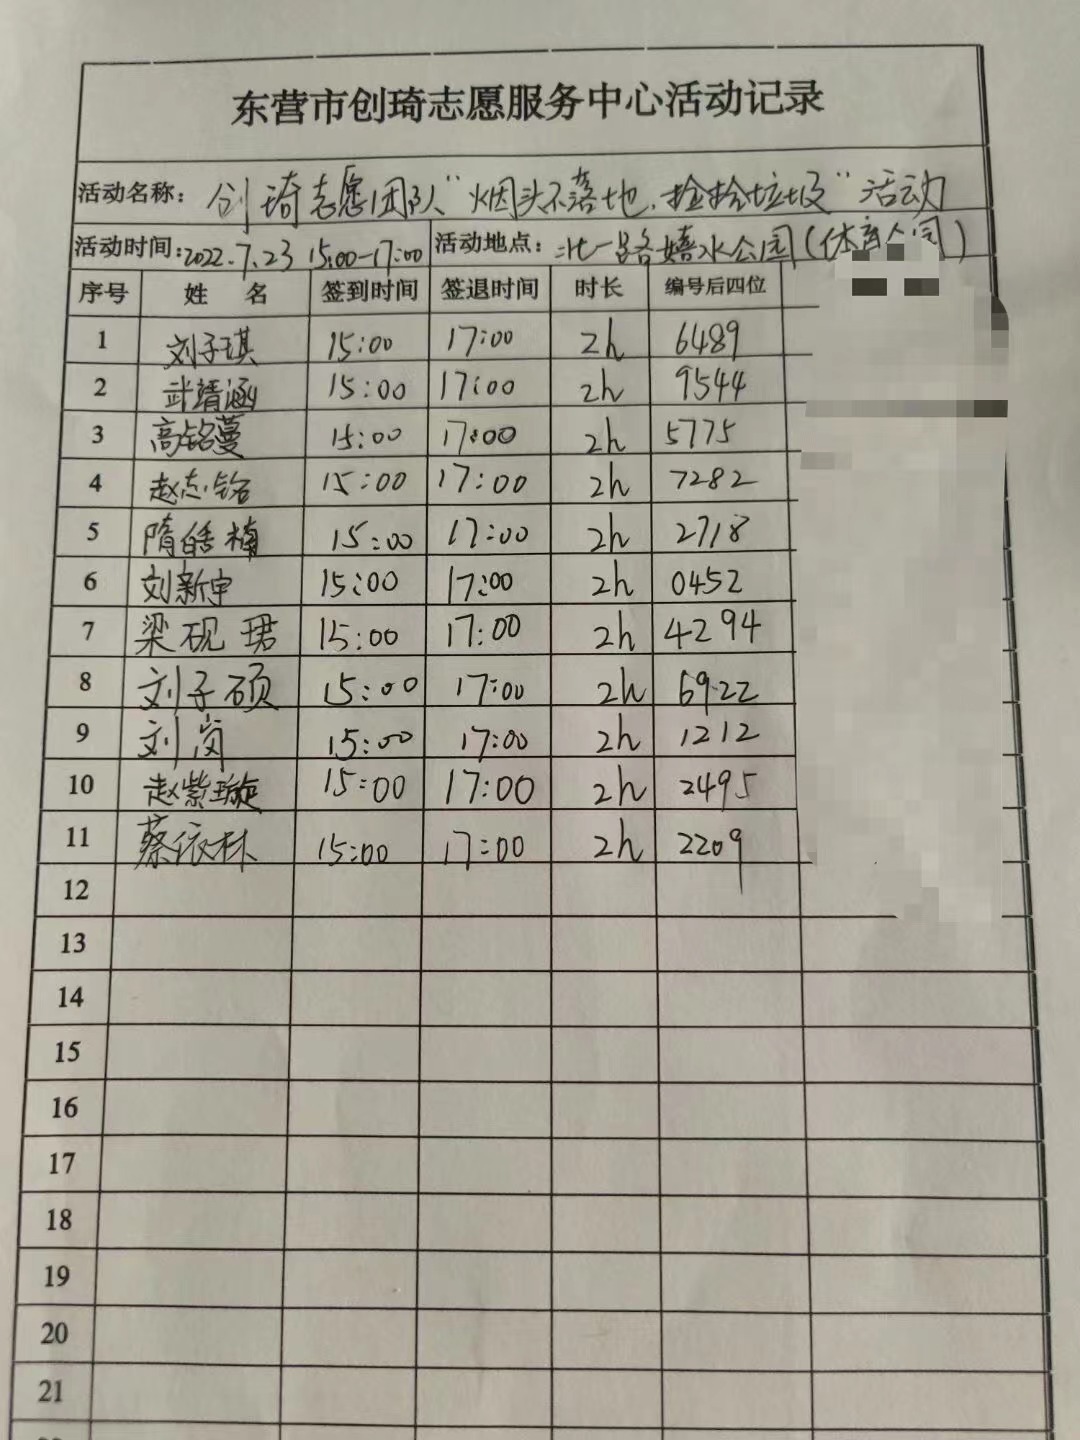 东营市创琦志愿服务中心活动记录
活动名称: 创琦志愿团队“烟头不落地,捡捡垃圾”活动
活动时间:2022.7.23 15:00-17:00 活动地点: 北一路嬉水公园(体育公园)
序号 姓 名 签到时间 签退时间 时长 编号后四位
1 刘子琪 15:00 17:00 2h 6489
2 武靖涵 15:00 17:00 2h 9544
3 高铭蔓 15:00 17:00 2h 5775
4 赵志铭 15:00 17:00 2h 7282
5 隋皓楠 15:00 17:00 2h 2718
6 刘新宇 15:00 17:00 2h 0452
7 梁砚珺 15:00 17:00 2h 4294
8 刘子硕 15:00 17:00 2h 6922
9 刘岚 15:00 17:00 2h 1212
10 赵紫璇 15:00 17:00 2h 2495
11 蔡依林 15:00 17:00 2h 2209
12
13
14
15
16
17
18
19
20
21